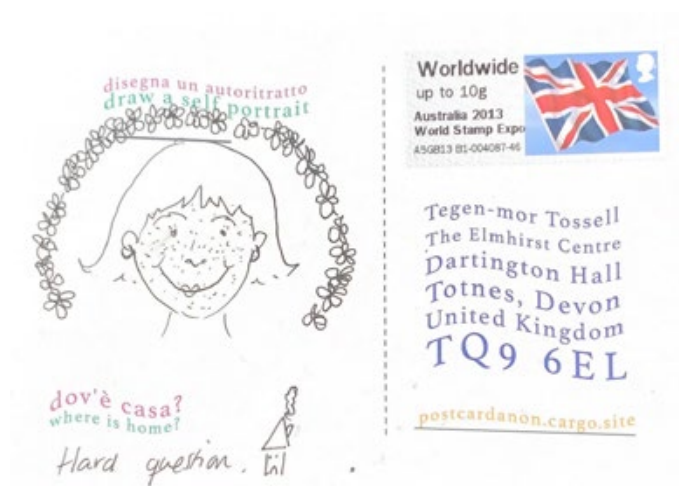 disegna un autoritratto
draw a self portrait
dov'è casa?
where is home?
Hard question.
Worldwide
up to 10g
Australia 2013
World Stamp Expo
A5GB13 B1-004087-46
Tegen-mor Tossell
The Elmhirst Centre
Dartington Hall
Totnes, Devon
United Kingdom
TQ9 6EL
postcardanon.cargo.site